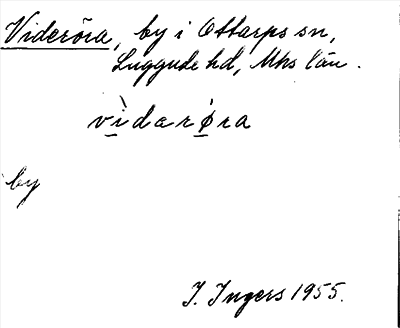 Videröra, by i Ottarps sn,
Luggude hd, Mhs län.
vìdarøra
by
I. Ingers 1955.